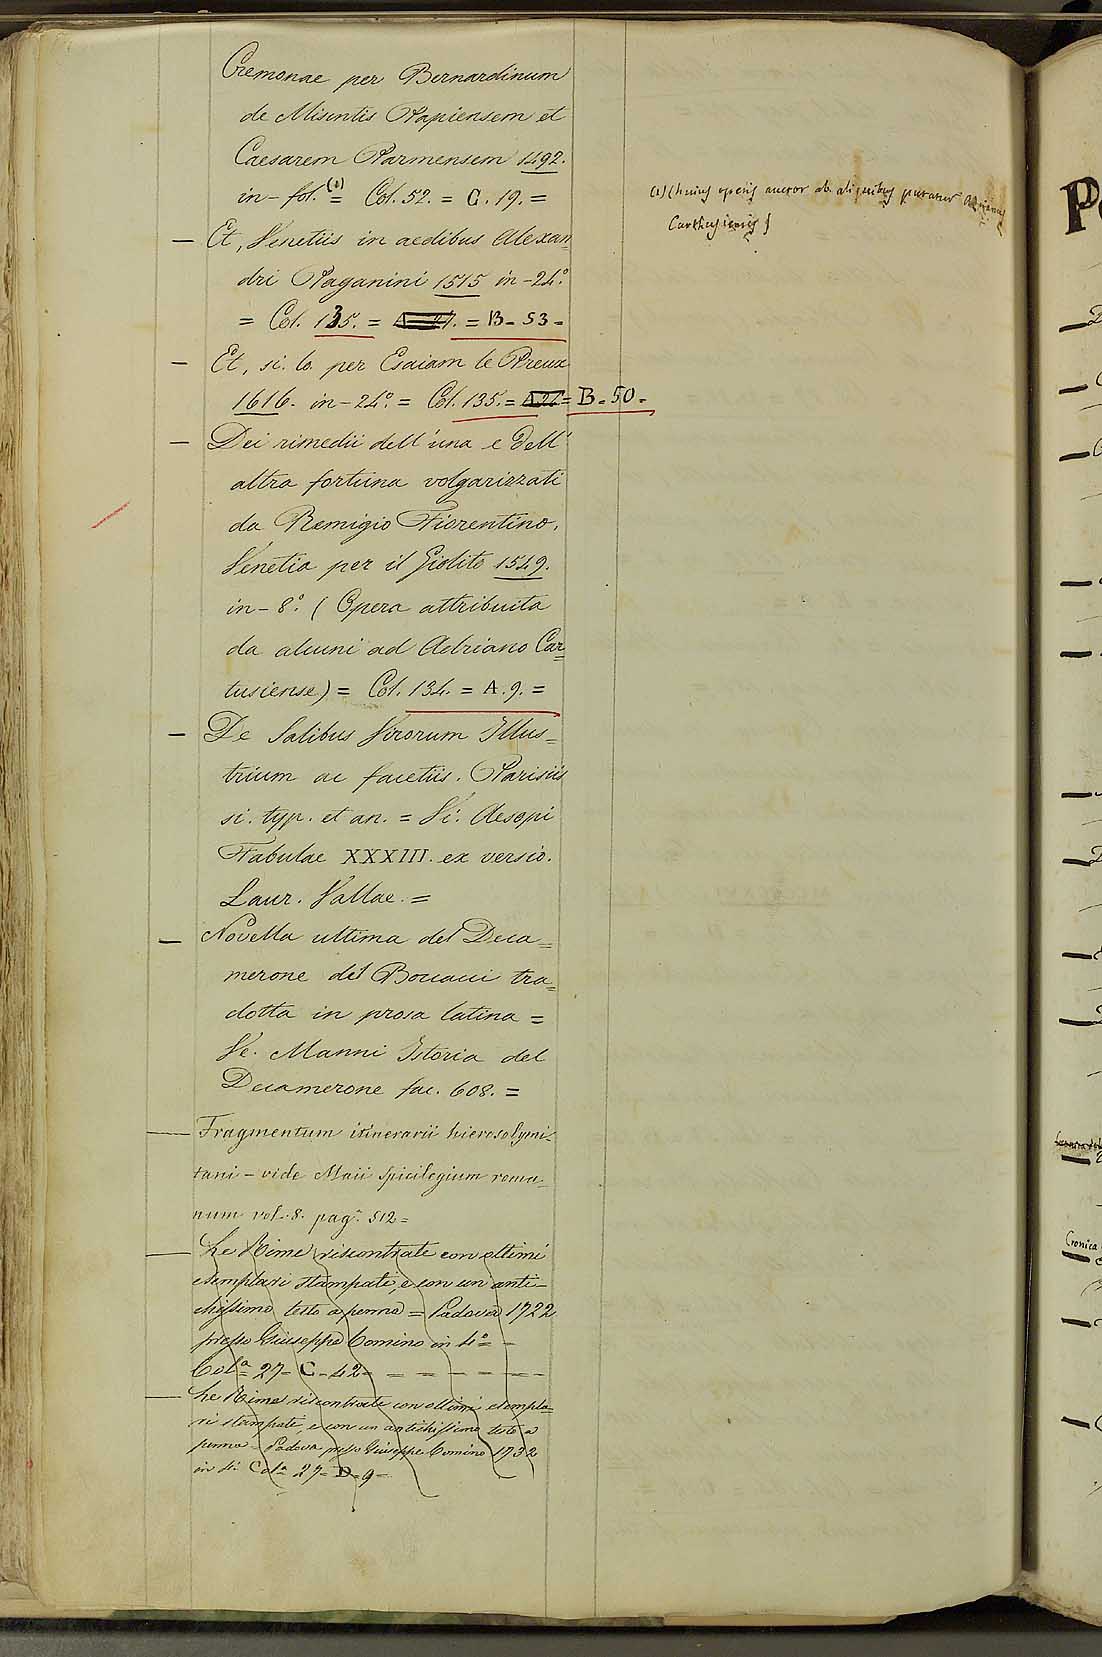 Cremonae per Bernardinum
de Misintis Papiensem et
Caesarem Parmensem 1492.
in-fol.(1) = Col. 52. = C. 19. =
— Et, Venetiis in aedibus Alexan=
dri Paganini 1515 in-24.°
= Col. 135. = = B- 53 =
— Et, si. lo. per Esaiam le Preux
1616. in-24.° = Col. 135. = = B. 50.
— Dei rimedii dell'una e dell'
altra fortuna volgarizzati
da Remigio Fiorentino.
Venetia per il Giolito 1549.
in-8.° (Opera attribuita
da alcuni ad Adriano Car=
tusiense) = Col. 134. = A. 9. =
— De Salibus Virorum Illus=
trium ac facetiis. Parisiis
si. typ. et an. = Vi: Aesopi
Fabulae XXXIII. ex versio.
Laur. Vallae. =
— Novella ultima del Deca=
merone del Boccacci tra=
dotta in prosa latina =
Ve. Manni Istoria del
Decamerone fac. 608. =
— Fragmentum itinerarii hierosolymi-
tani - vide Maii Spicilegium roma-
num vol. 8. pag. 512=
— Le Rime riscontrate con ottimi
esemplari stampati, e con un anti-
chissimo testo a penna = Padova 1722
presso Giuseppe Comino in 4.° = -
Col.a 27- C- 42= = = = - - - -
— Le Rime riscontrate con ottimi esempla=
ri stampati, e con un antichissimo testo a
penna = Padova presso Giuseppe Comino 1732
in 4.° Col.a 27= D= 9=
(1) (huius operis auctor ab aliquibus putatur Adrianus
Carthusiensis)
Cronica